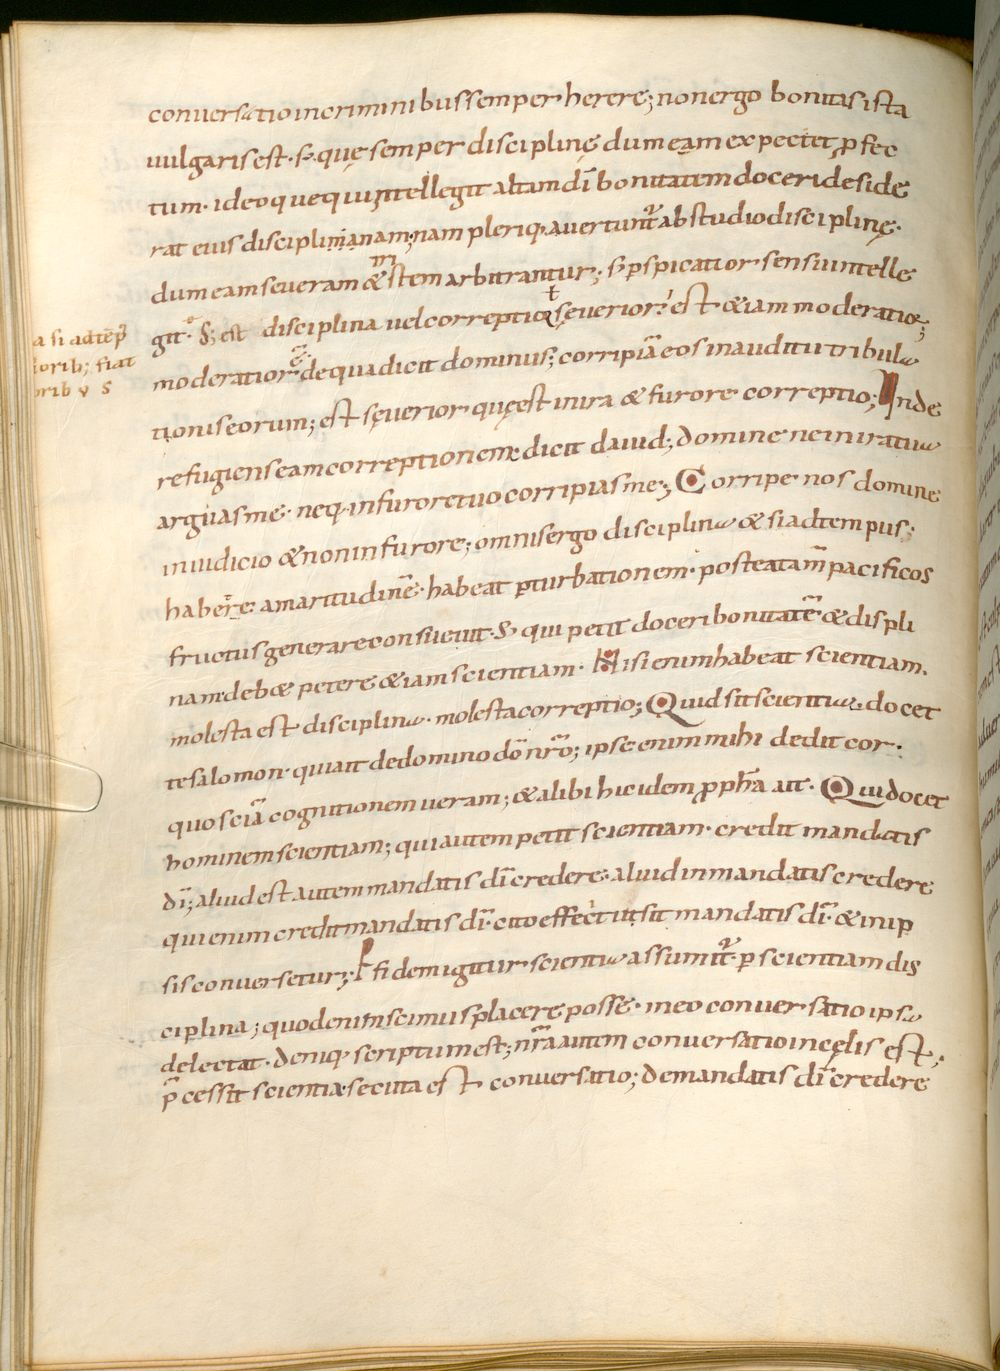 conuersatio in criminibus semper herere; non ergo bonitas ista
uulgaris est· s; quę semper disciplinę dum eam expectet, ꝓfec
tum· ideoque qui intellegit altam dī bonitatem doceri deside
rat eius disciplinanam; nam pleriq· auertunt᷑ ab studio disciplinę·
dum eam seueram & mestem arbitrantur; s; ꝑspicatior sensu intelle
git· S; est disciplina uel correptio seuerior· est &iam moderatior;
moderatior de qua dicit dominus; corripiā eos in auditu tribula
tionis eorum; est seuerior quę est in ira & furore correptio; Inde
refugiens eam correptionem dicit dauid; domine ne in ira tua
arguas me· neq· in furore tuo corripias me; Corripe nos domine
in iudicio & non in furore; omnis ergo disciplina & si ad tempus;
habere amaritudinē· habeat ꝑturbationem· postea tam̄ pacificos
fructus generare consueuit· & qui petit doceri bonitatē & displi
nam· deb& petere &iam scientiam· Nisi enim habeat scientiam·
molesta est disciplina· molesta correptio; Quid sit scientia· docet
te salomon· quia it de domino dō nrō; ipse enim mihi dedit cor·
quo sciā cognitionem ueram; & alibi hic idem ꝓph̄a ait· Qui docet
hominem scientiam; qui autem petit scientiam· credit mandatis
dī; aliud est autem mandatis dī credere· aliud in mandatis credere
qui enim credit mandatis dī· cito effecit ut sit mandatis dī· & in ip
sis conuersetur; P fidem igitur scientia assumit᷑· ꝑ scientiam dis
ciplina; quod enim scimus placere posse· in eo conuersatio ipsa
delectat· deniq· scriptum est; nr̄a autem conuersatio in cęlis est;
p̄cessit scientia· secuta est conuersatio; de mandatis dī credere
a si ad tēp̄
orib; fiat
orib v S